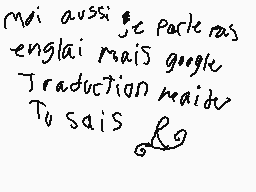 moi aussi je parle pas
englai mais google
Traduction maider
Tu sais